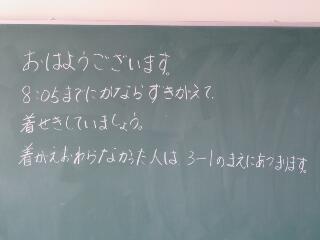 おはようございます。
8:05までにかならずきがえて、
着せきしていましょう。
着がえおわらなかった人は 3-1のまえにあつまります。